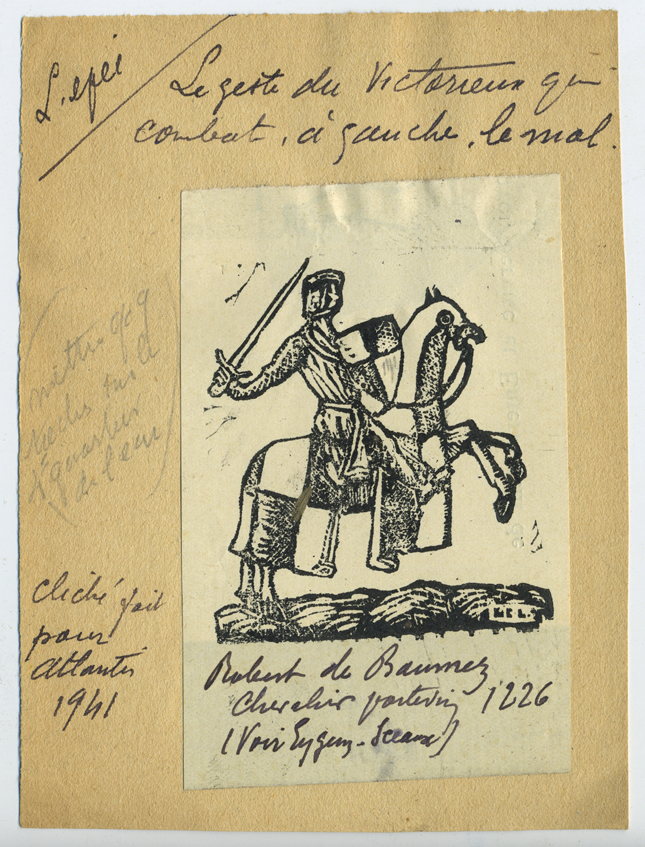 L'épée
Le geste du Victorieux qui
combat, à gauche, le mal.
mettre
sur le
quartier
de l'écu
cliché fait
pour
Atlantis
1941
Robert de Baumez
Chevalier poitevin 1226
(Voir Eygun - Sceaux)